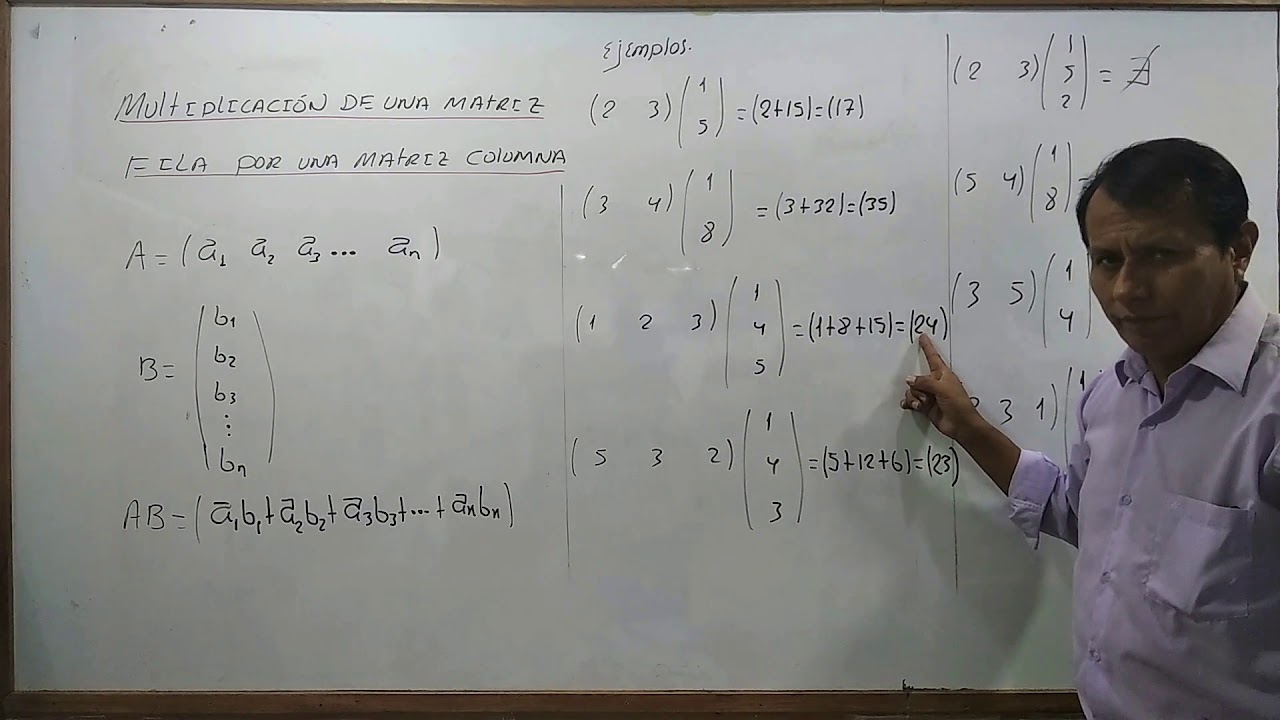 MULTIPLICACIÓN DE UNA MATRIZ
FILA POR UNA MATRIZ COLUMNA
A = ( a̅₁ a̅₂ a̅₃ ... a̅ₙ )
B = ( b₁
b₂
b₃
⋮
bₙ )
AB = ( a̅₁b₁ + a̅₂b₂ + a̅₃b₃ + ... + a̅ₙbₙ )
Ejemplos.
(2 3) (1
5) = (2+15) = (17)
(3 4) (1
8) = (3+32) = (35)
(1 2 3) (1
4
5) = (1+8+15) = (24)
(5 3 2) (1
4
3) = (5+12+6) = (23)
(2 3) (1
5
2) = ∄
(5 4) (1
8) =
(3 5) (1
4
3 1) (1